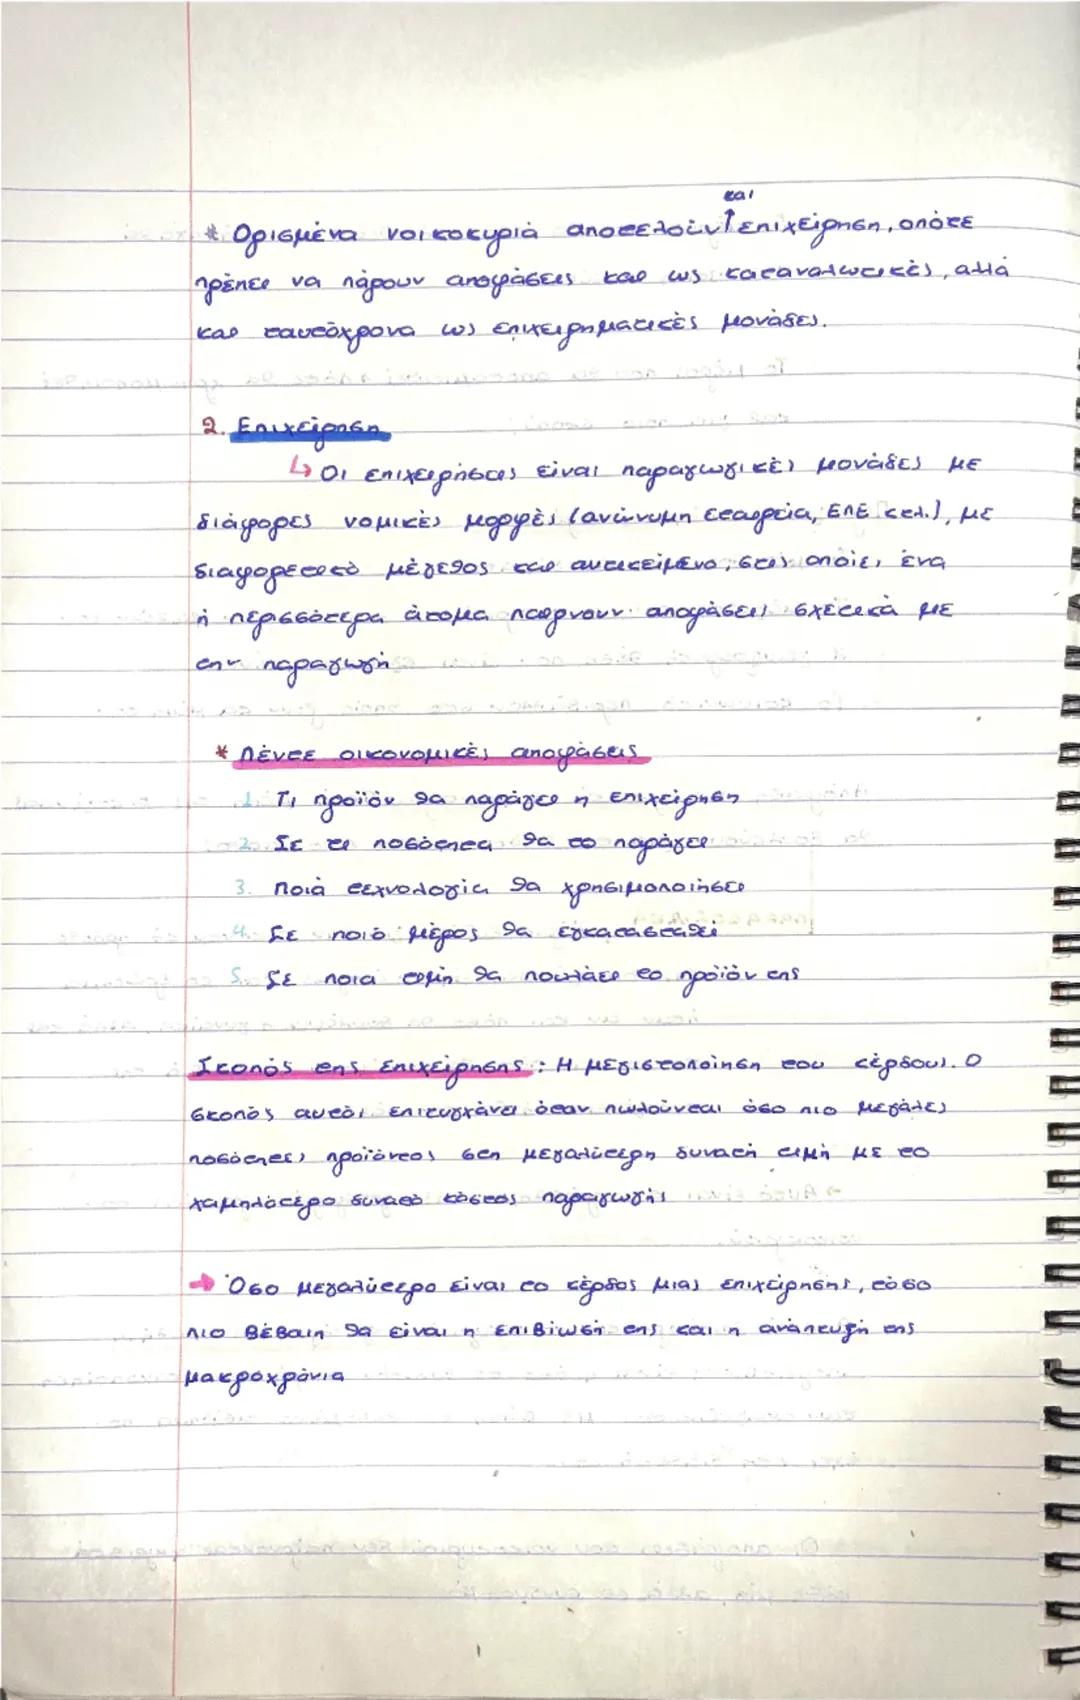 και
* Ορισμένα νοικοκυριά αποτελούν ↑ επιχείρηση, οπότε
πρέπει να πάρουν αποφάσεις και ως καταναλωτικές, αλλά
και ταυτόχρονα ως επιχειρηματικές μονάδες.
2. Επιχείρηση
↳ Οι επιχειρήσεις είναι παραγωγικές μονάδες με
διάφορες νομικές μορφές (ανώνυμη εταιρεία, ΕΠΕ κτλ.), με
διαφορετικό μέγεθος και αντικείμενο, στις οποίες ένα
ή περισσότερα άτομα παίρνουν αποφάσεις σχετικά με
την παραγωγή
* Πέντε οικονομικές αποφάσεις
1. Τι προϊόν θα παράγει η επιχείρηση
2. Σε τι ποσότητα θα το παράγει
3. Ποιά τεχνολογία θα χρησιμοποιήσει
4. Σε ποιό μέρος θα εγκατασταθεί
5. Σε ποια τιμή θα πουλάει το προϊόν της
Σκοπός της επιχείρησης : Η μεγιστοποίηση του κέρδους. Ο
σκοπός αυτός επιτυγχάνει όταν πωλούνται όσο πιο μεγάλες
ποσότητες προϊόντος στη μεγαλύτερη δυνατή τιμή με το
χαμηλότερο δυνατό κόστος παραγωγής
→ Όσο μεγαλύτερο είναι το κέρδος μιας επιχείρησης, τόσο
πιο βέβαιη θα είναι η επιβίωσή της και η ανάπτυξή της
μακροχρόνια